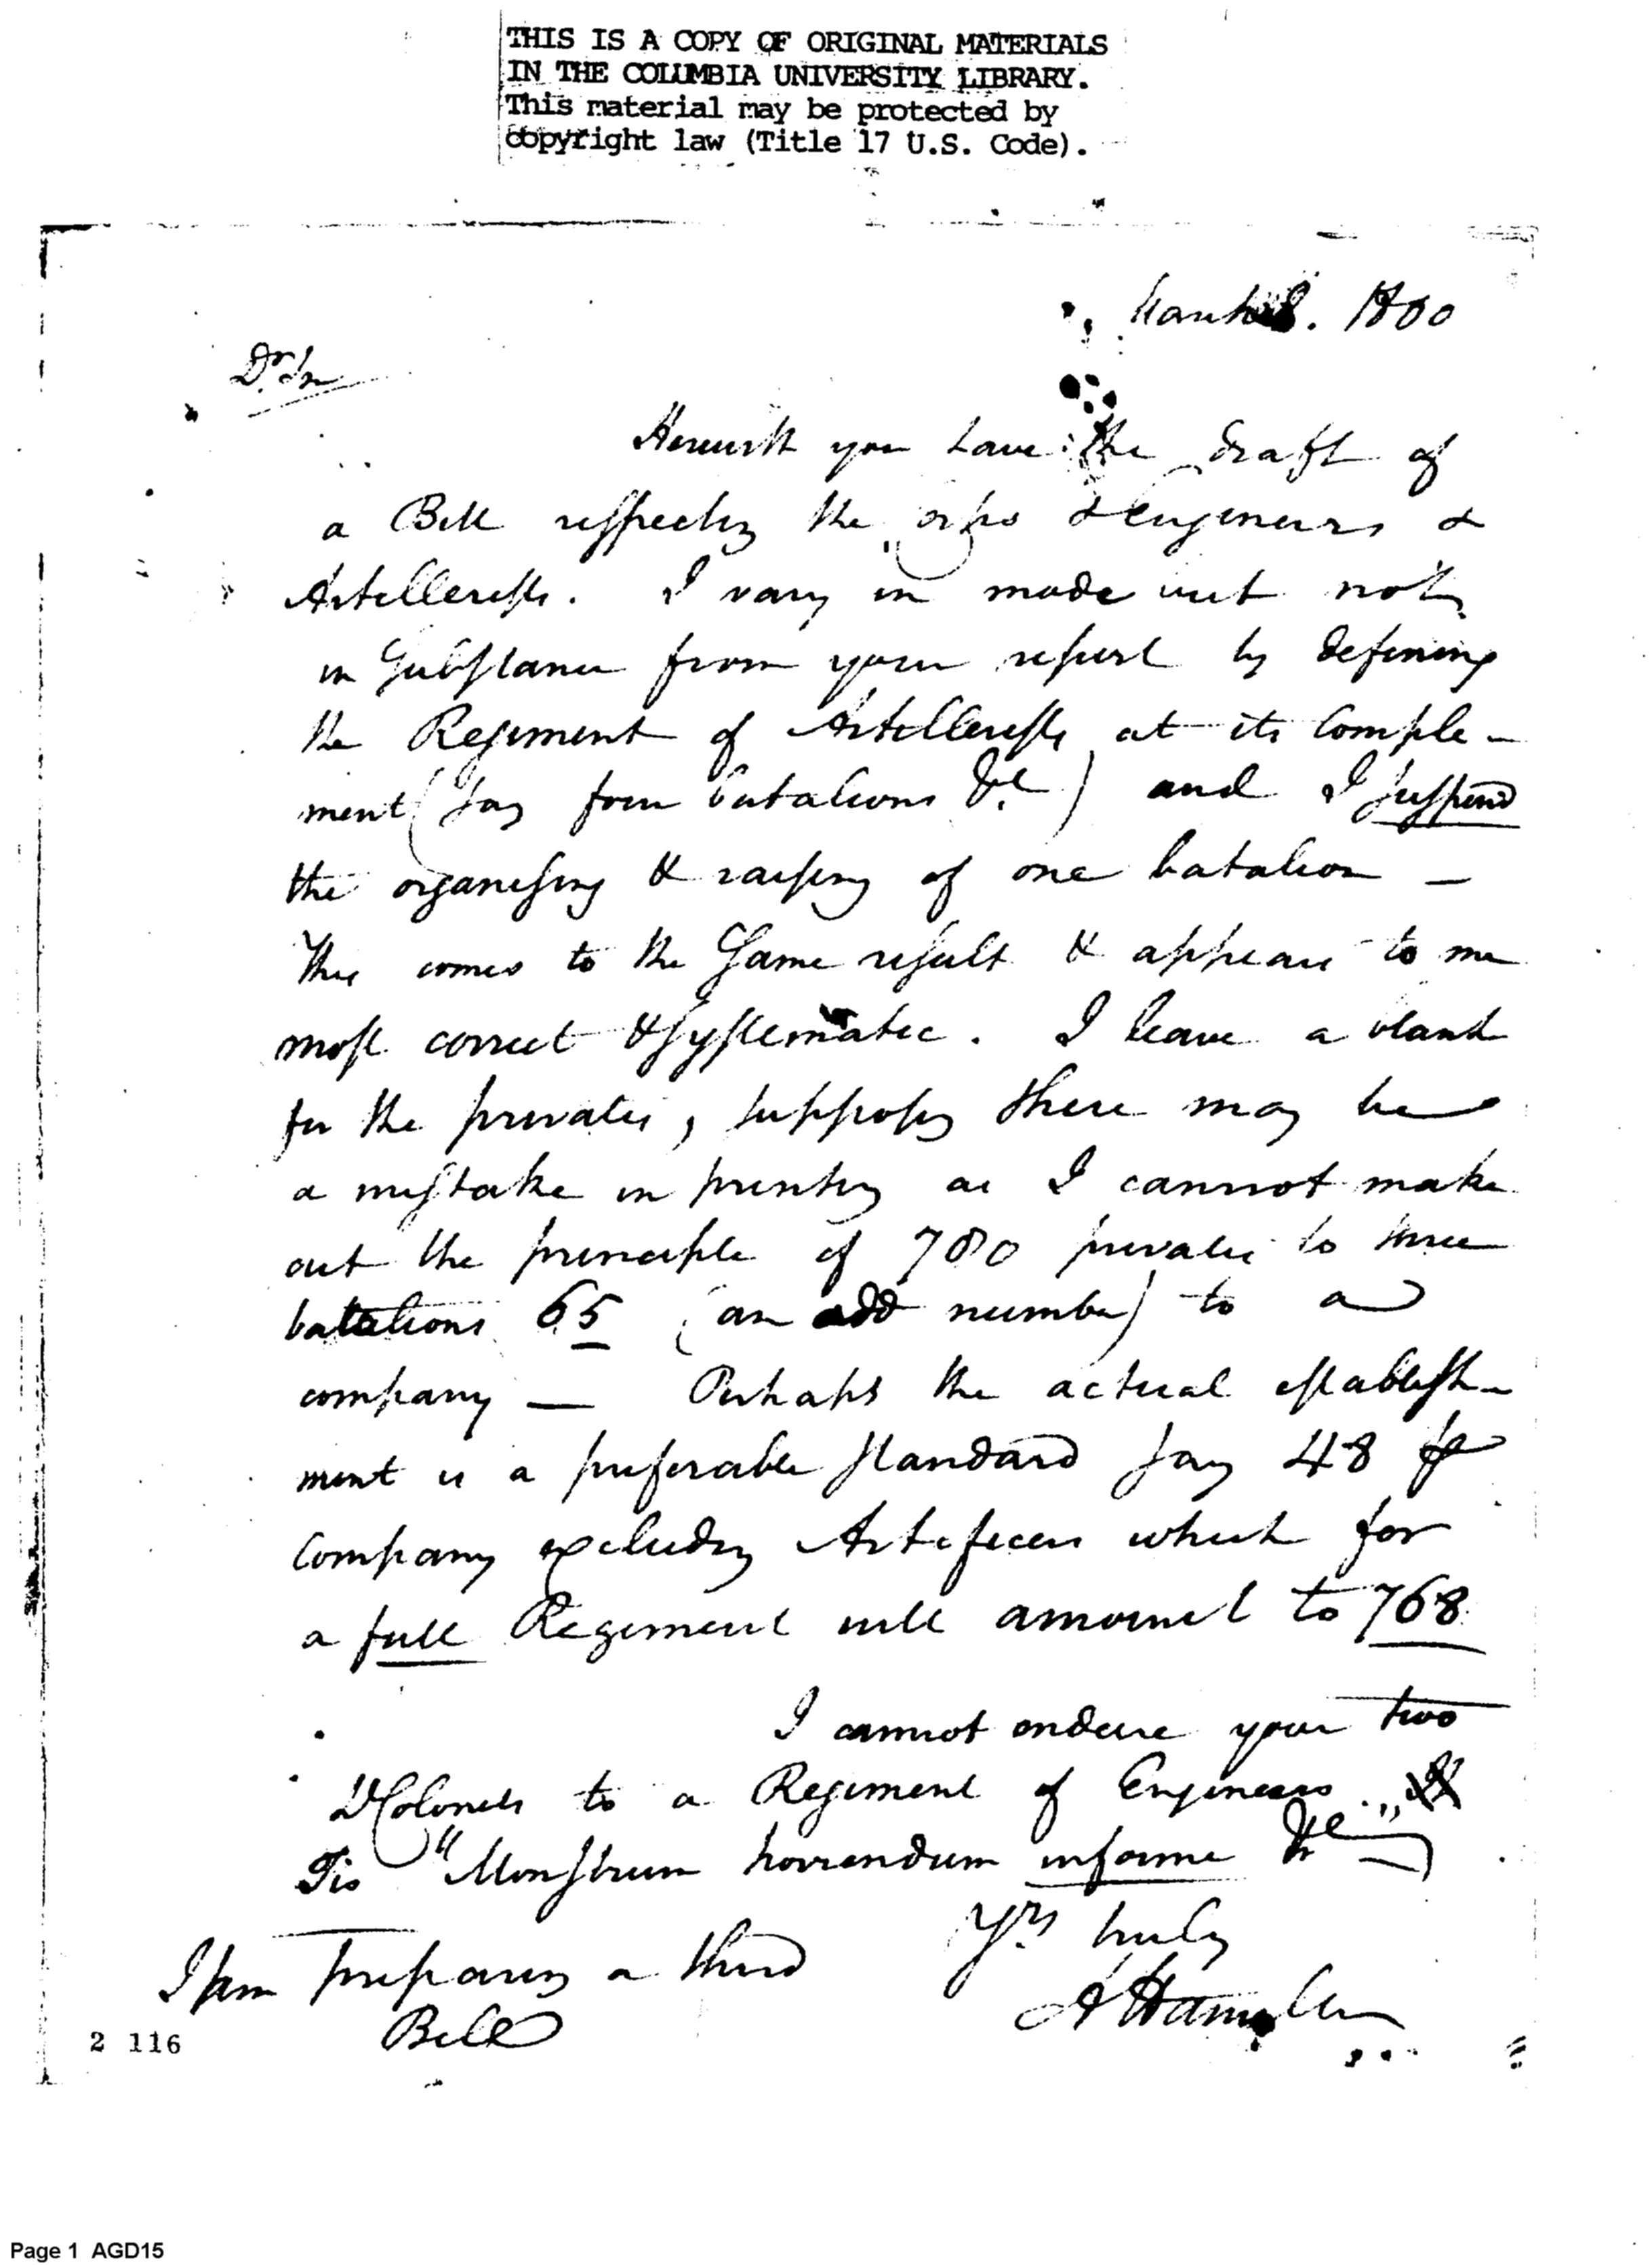 THIS IS A COPY OF ORIGINAL MATERIALS
IN THE COLUMBIA UNIVERSITY LIBRARY.
This material may be protected by
copyright law (Title 17 U.S. Code).
March 8. 1800
Dr. Sr
Herewith you have the draft of
a Bill respecting the corps of Engineers &
Artillerists. I vary in mode but not
in substance from your report by defining
the Regiment of Artillerists at its comple-
ment (say four batalions &c) and I suspend
the organising & raising of one batalion —
This comes to the same result & appears to me
most correct & systematic. I leave a blank
for the privates, supposing there may be
a mistake in printing as I cannot make
out the principle of 780 privates to three
batalions 65 (an odd number) to a
company — Perhaps the actual establish-
ment is a preferable standard say 48 per
company excluding Artificers which for
a full Regiment will amount to 768
I cannot endure your two
Lt Colonels to a Regiment of Engineers.
Tis "Monstrum horrendum informe &c"
Yrs truly
A Hamilton
I am preparing a third
Bill
2 116
Page 1 AGD15